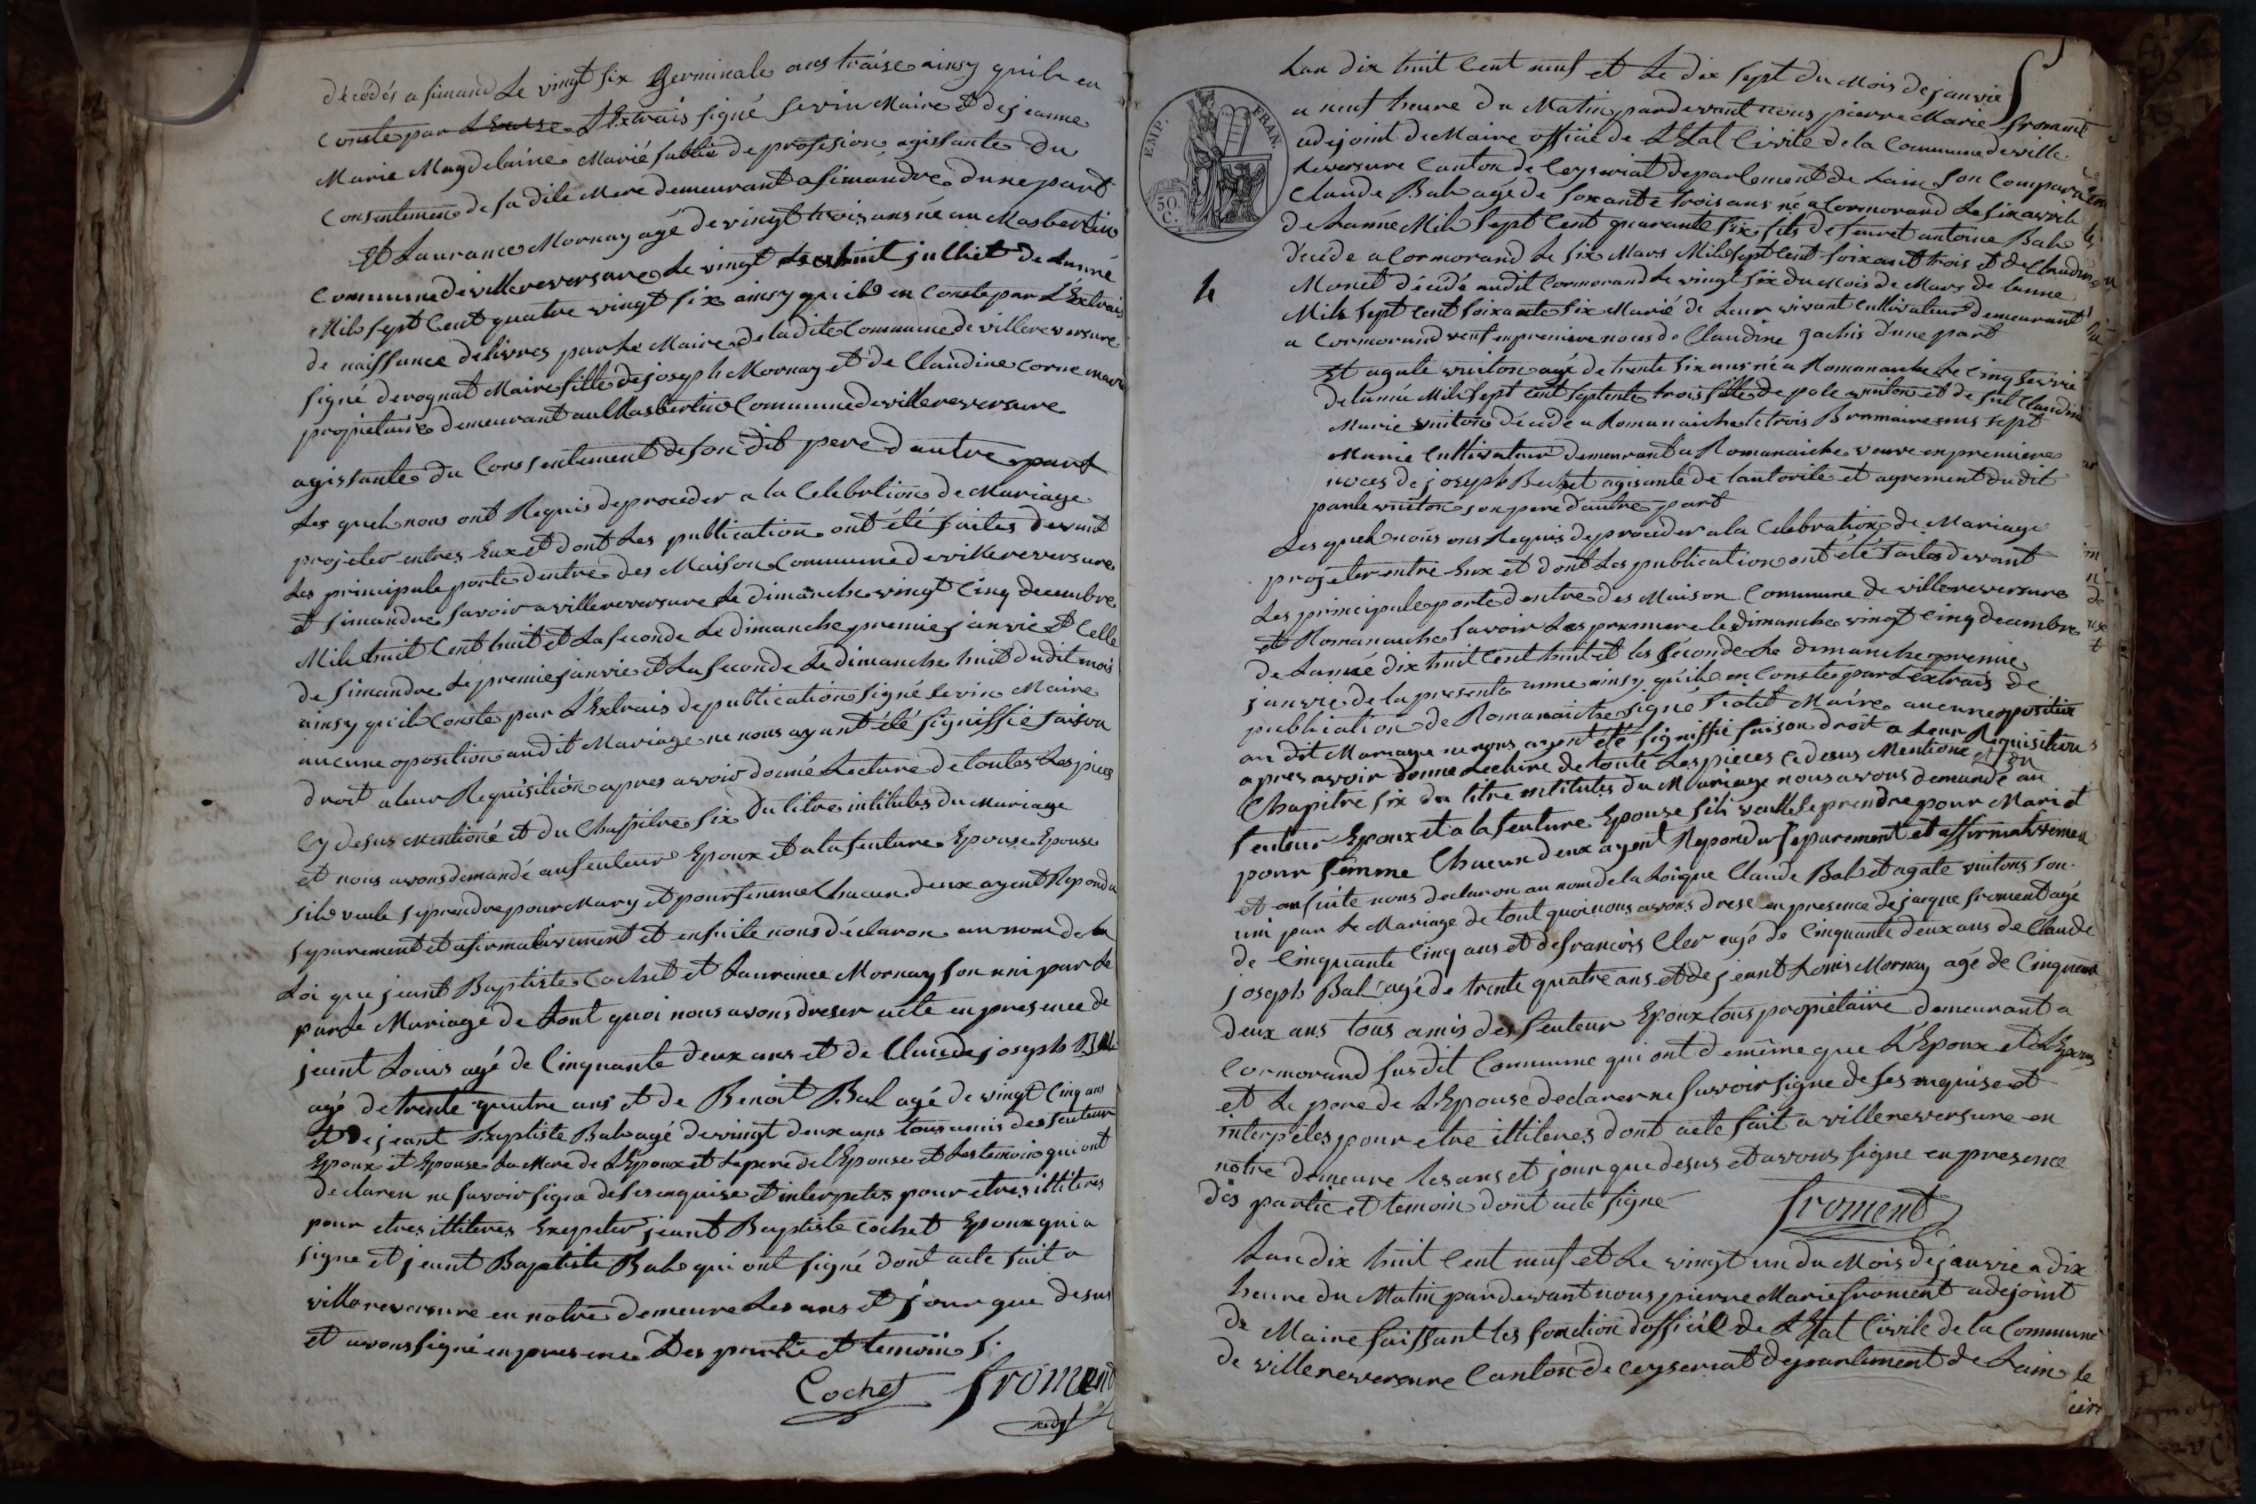 décédés a simand Le vingt six Germinale ans traise ainsy quile en
Conste par L'Extrais signé sevin Maire et de jeanne
Marie Magdelaine Marié sublie de profesion agissante du
Consentemen de sa dite Mere demeurant a simandre dune part
Et Laurance Mornay agé de vingt trois ans né au Masbertin
Commune de villereversure Le vingt huit julliet de Lanné
Mile sept Cent quatre vingt six ainsy quile en Conste par L'Extrais
de naissance delivres par Le Maire de la dite Commune de villereversure
signé derognat Maire fille de joseph Mornay et de Claudine Corne marié
propriétaire demeurant au Masbertin Commune de villereversure
agissante du Consentement de son dit pere d'autre part
Les quels nous ont Requis de proceder a la Celebrtion de Mariage
projeter entres Eux et dont Les publication ont été faites devant
Les principale porte d'entre des Maison Commune de villereversure
et simandre savoir a villereversure Le dimanche vingt Cinq decembre
Mile huit Cent huit et La seconde Le dimanche premie janvie et Celle
de simandre Le premie janvie et La seconde Le dimanche huit dudit mois
ainsy quile Conste par L'Extrais de publication signé sevin Maire
aucune oposition audit Mariage ne nous ayant été signiffié faison
droit a leur Requisition apres avoir donné Lecture de toutes Les pieces
Cy desus Mentioné et du Chapitre six Du titres intitules du Mariage
et nous avons demandé au feuteur Epoux et a la feuture Epouse Epouse
sile veule se prendre pour Mary et pour femme Chacun deux ayent Repondu
separement et afirmativement et ensuite nous déclaron au nom de la
Loi que jeant Baptiste Cochet et Laurance Mornay son uni par Le
par Le Mariage de tout quoi nous avons dreser acte en presence de
jeant Louis agé de Cinquante deux ans et de Claude joseph Bal
agé de trente quatre ans et de Benoit Bal agé de vingt Cinq ans
et de jeant Baptiste Bal agé de vingt deux ans tous amis des feuteur
Epoux et Epouse La Mere de L'Epoux et Le pere de L'Epouse et Les temoin qui ont
declaren ne savoir signe de ses enquise et interpeles pour etres illiteres
pour etres illiteres Exepeter jeant Baptiste Cochet Epoux qui a
signe et jeant Baptiste Bal qui ont signé dont acte fait a
villereversure en notre demeure Les ans et jour que desus
et avons signé en presence Des partie et temoin
Cochet froment
adjt
EMP. FRAN.
50. C.
Lan dix huit Cent neuf et Le dix sept du Mois de janvié
a neuf heure du Matin pardevant nous pierre Marie froment
adejoint de Maire officie de L'Etat Civile de la Commune de ville
reversure Canton de Ceyseriat departement de Lain son Comparu
Claude Bal agé de soxante trois ans né a Cormorand Le six avril
de Lanné Mil sept Cent quarante six fils de feu et antoine Bal
décéde a Cormorand Le six Mars Mile sept Cent soixant trois et de Claudine
Monet décédé audit Cormorand Le vingt six du Mois de Mars de lanne
Mile sept Cent soixante six Marié de Leur vivant Cultivateur demeurant
4
a Cormorand veuf en premiere noces de Claudine gachis d'une part
Et agate vuiton agé de trente six ans né a Romanaiche Le Cinq fevrie
de lanné Mile sept Cent septente trois fille de pole vuiton et de fut Claudine
Marie vuiton décédé a Romanaiche le trois Brumaire ans sept
Marié Cultivateur demeurant a Romanaiche veuve en premiere
noces de joseph Bechet agisante de l'autorité et agrement du dit
paule vuiton son pere d'autre part
Les quels nous ons Requis de proceder a la Celebration de Mariage
projeter entre Eux et dont Les publication ont été faites devant
Les principale porte d'entre des Maison Commune de villereversure
et Romanaiche savoir Les premiere le dimanche vingt Cinq decembre
de Lanné dix huit Cent huit et les séconde Le dimanche premie
janvie de la presente anne ainsy quile en Conste par L'extrais de
publication de Romanaiche signé Maire aucune oposition
au dit Mariage ne nous ayent été signiffié faison droit a Leur Requisition
apres avoir donne Lecture de toute Les pieces Ci desus Mentione et du
Chapitre six du titre intitules du Mariage nous avons demandé au
feuteur Epoux et a la feuture Epouse sili veulle se prendre pour Mari et
pour femme Chacun deux ayent Repondu separement et affirmativement
et en suite nous declaron au nom de la Loi que Claude Bal et agate vuitons son
uni par Le Mariage de tout quoi nous avons drese en presence de jacque froment agé
de Cinquante Cinq ans et de francois Cler agé de Cinquante deux ans de Claude
joseph Bal agé de trente quatre ans et de jeant Louis Mornay agé de Cinquante
deux ans tous amis des feuteur Epoux tous propriétaire demeurant a
Cormorand susdit Commune qui ont de même que L'Epoux et L'Epouse
et Le pere de L'Epouse declarer ne savoir signe de ses enquise et
interpeles pour etre illiteres dont acte fait a villereversure en
notre demeure les ans et jour que desus et avons signe en presence
des partie et temoin dont acte signe
froment
Lan dix huit Cent neuf et Le vingt un du Mois de janvie a dix
heure du Matin pardevant nous pierre Marie froment adejoint
de Maire faissant les fonction d'officie de L'Etat Civile de la Commune
de villereversure Canton de Ceyseriat departement de Lain